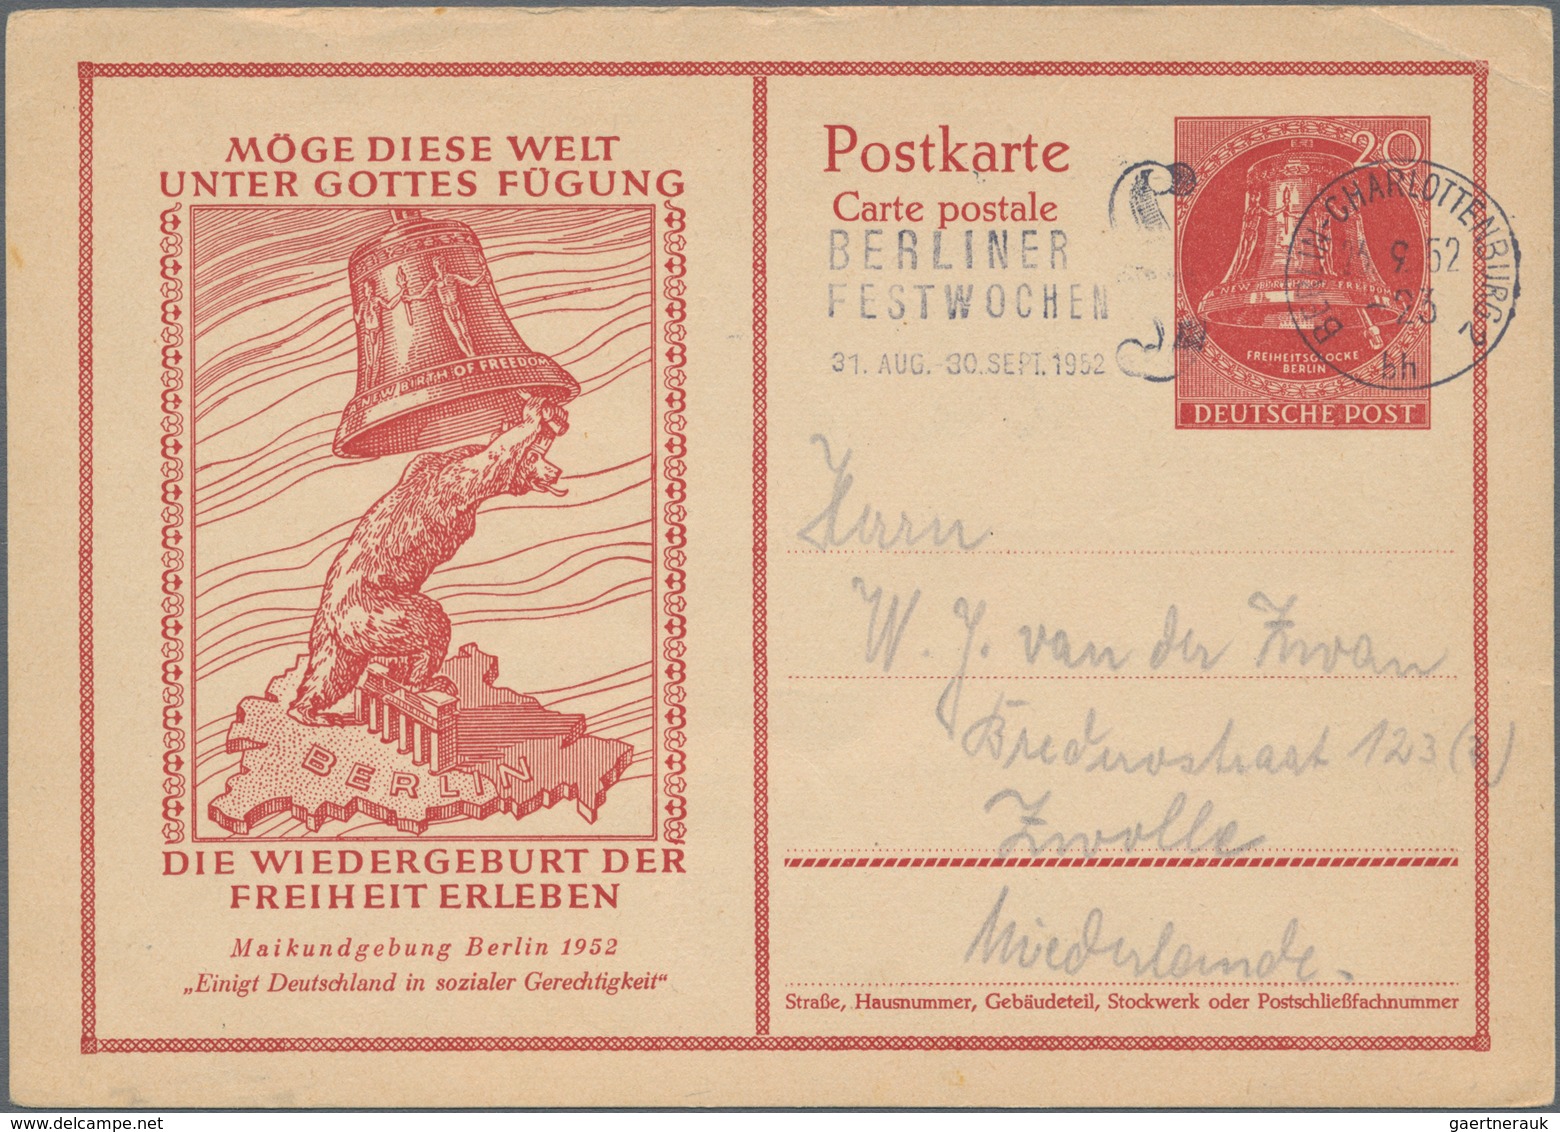 MÖGE DIESE WELT
UNTER GOTTES FÜGUNG
A NEW BIRTH OF FREEDOM
BERLIN
DIE WIEDERGEBURT DER
FREIHEIT ERLEBEN
Maikundgebung Berlin 1952
„Einigt Deutschland in sozialer Gerechtigkeit“
Postkarte
Carte postale
BERLINER
FESTWOCHEN
31. AUG.-30. SEPT. 1952
20
FREIHEITSGLOCKE
BERLIN
DEUTSCHE POST
BERLIN-CHARLOTTENBURG 2
9. 52
-23
bh
Herrn
W. J. van der Zwan
Brederostraat 123
Zwolle
Niederlande.
Straße, Hausnummer, Gebäudeteil, Stockwerk oder Postschließfachnummer
gaertnerauk